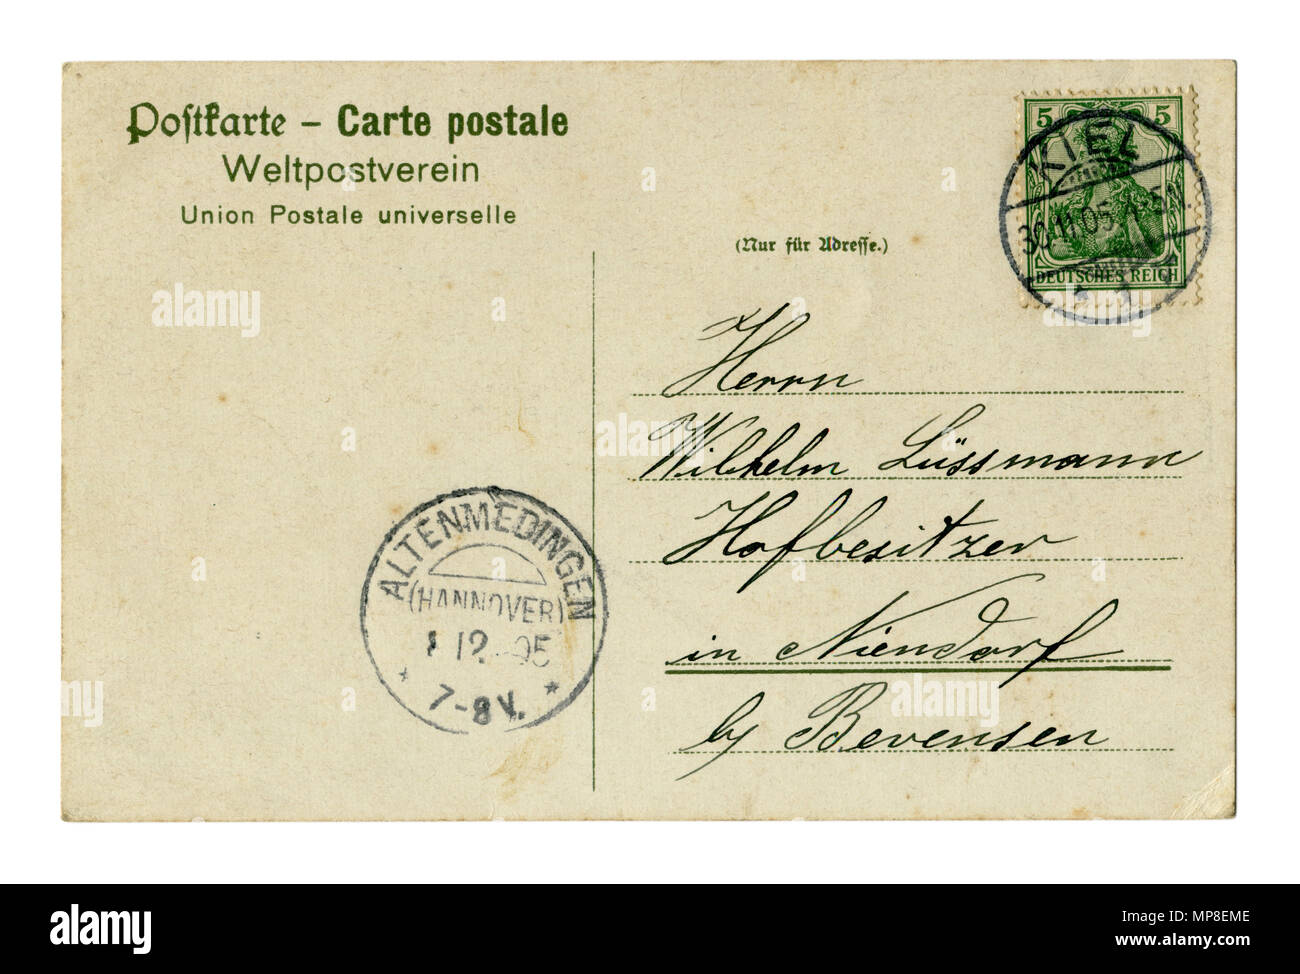 Postkarte – Carte postale
Weltpostverein
Union Postale universelle
(Nur für Adresse.)
5 5
KIEL
30.11.05
DEUTSCHES REICH
Herrn
Wilhelm Lüssmann
Hofbesitzer
in Niendorf
by Bevensen
ALTENMEDINGEN
(HANNOVER)
1 12 05
7-8 V.
a alamy stock photo
alamy
MP8EME
www.alamy.com